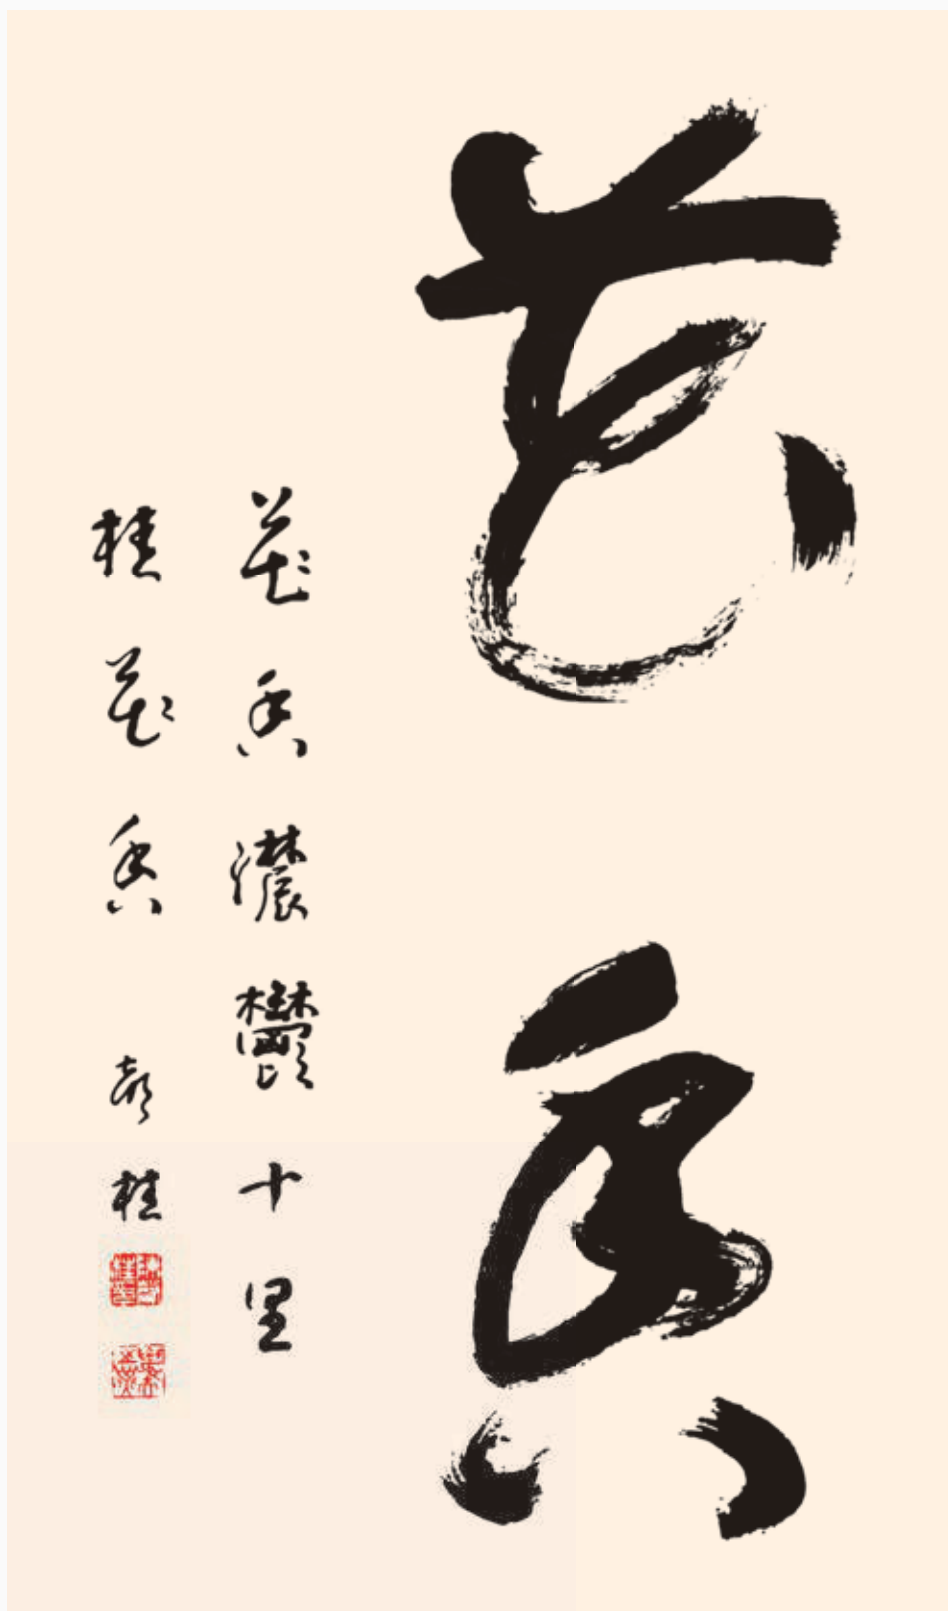 花香
花香濃鬱十里
桂花香 桂